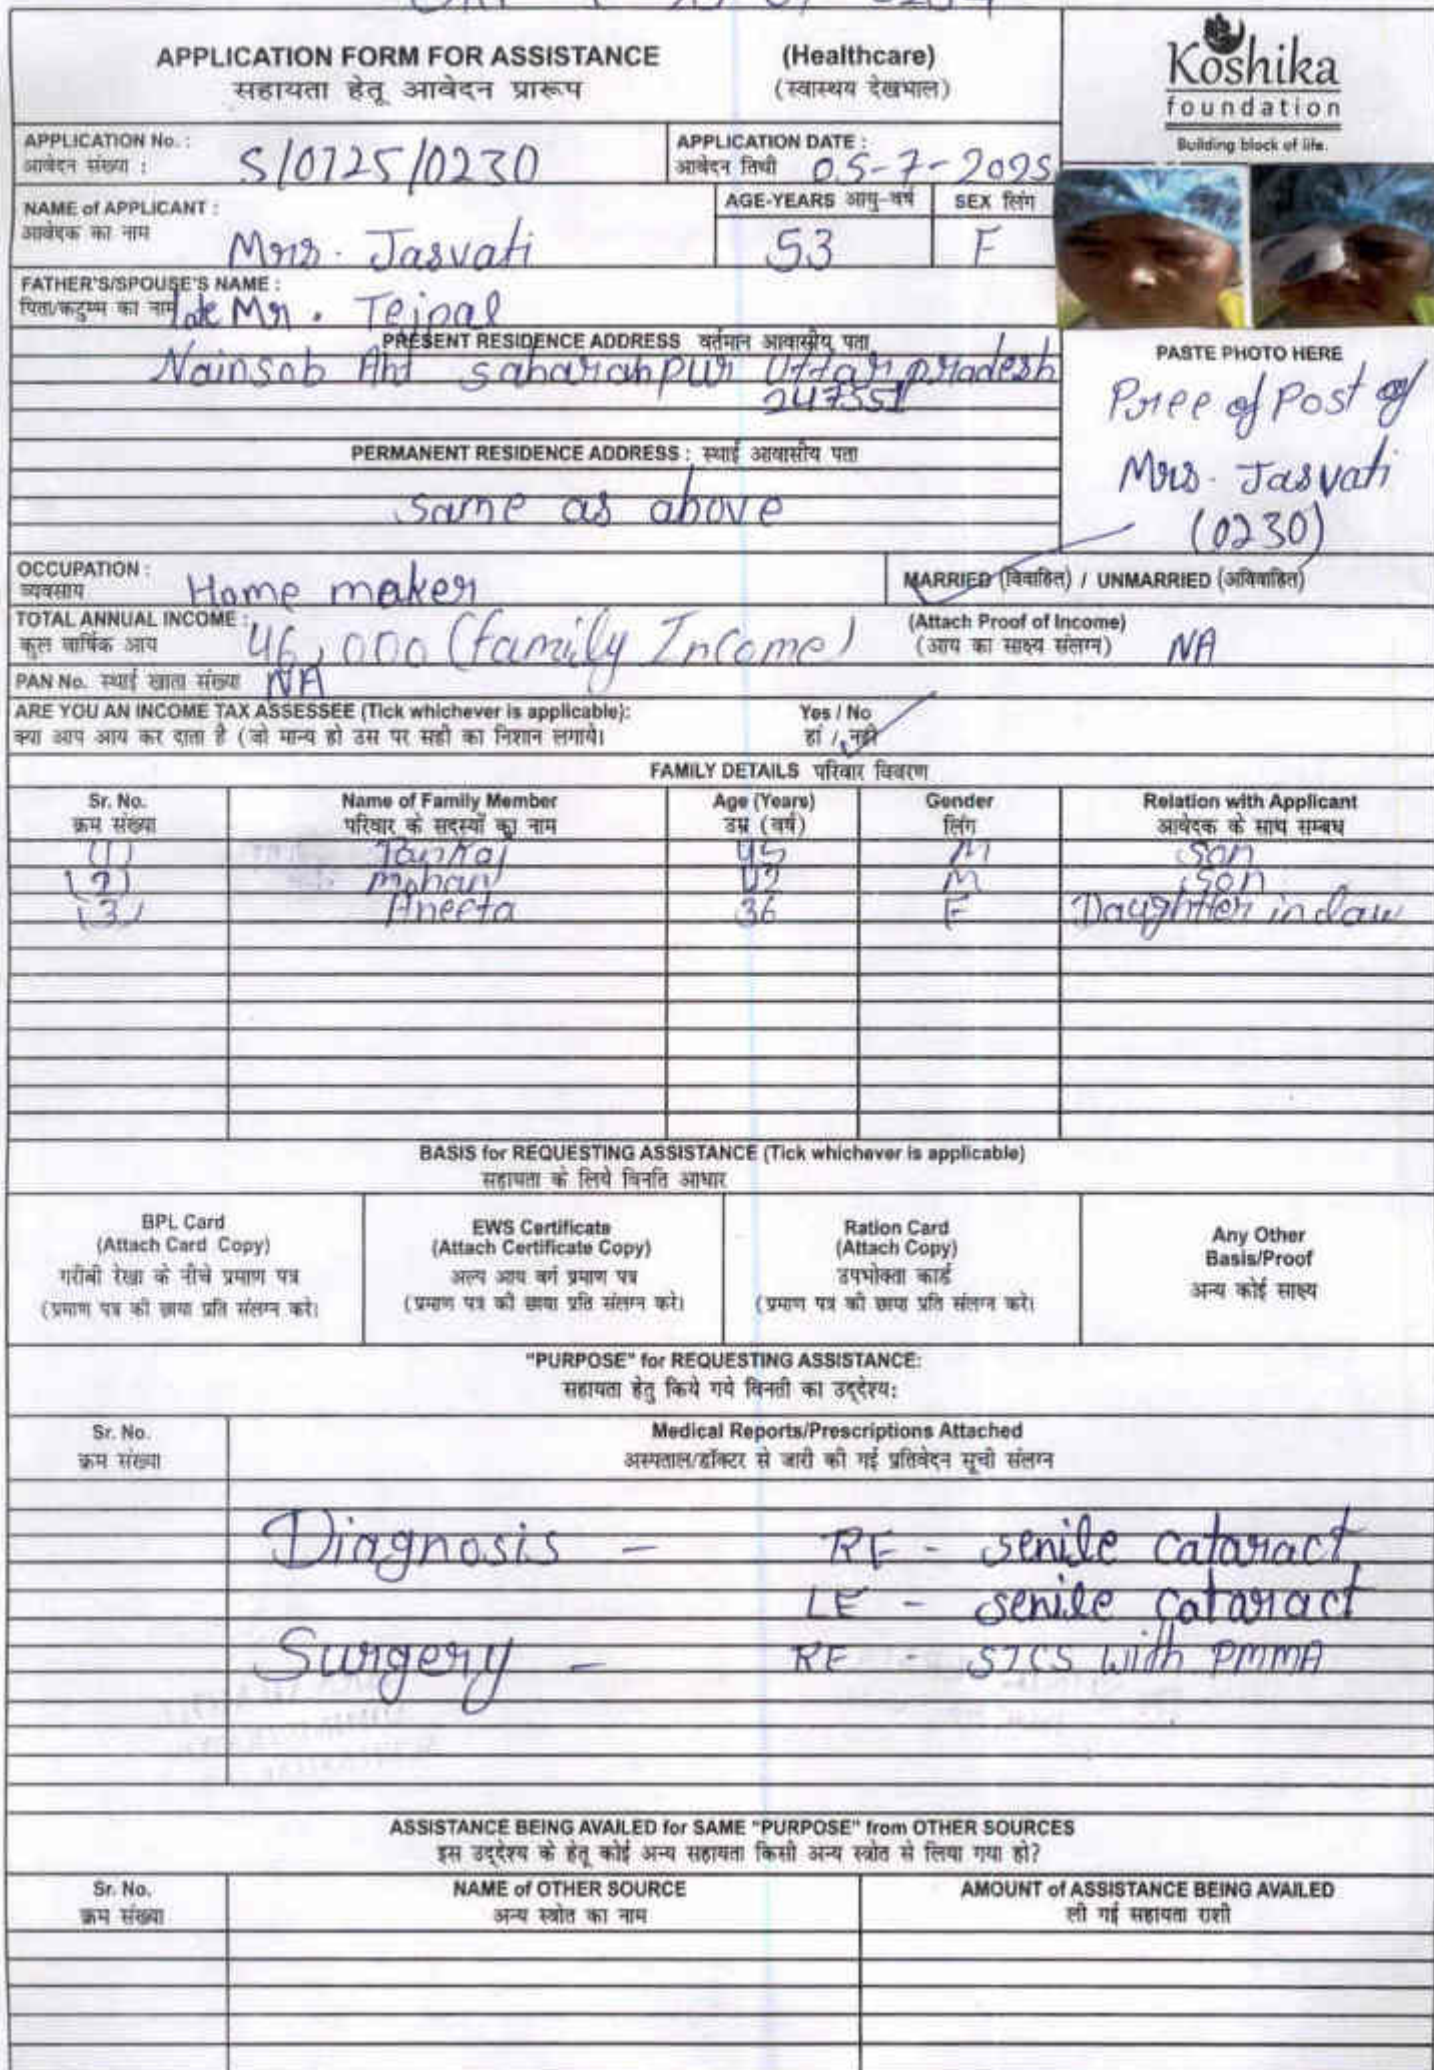 APPLICATION FORM FOR ASSISTANCE (Healthcare)
सहायता हेतू आवेदन प्रारूप (स्वास्थय देखभाल)
Koshika
foundation
Building block of life.
APPLICATION No. : S/0725/0230 APPLICATION DATE : 05-7-2025
आवेदन संख्या : आवेदन तिथी
NAME of APPLICANT : Mrs. Jasvati AGE-YEARS आयु-वर्ष 53 SEX लिंग F
आवेदक का नाम
FATHER'S/SPOUSE'S NAME :
पिता/कटुम्ब का नाम late Mr. Tejpal
PRESENT RESIDENCE ADDRESS वर्तमान आवासीय पता
Nainsob Aht saharanpur Uttar pradesh
247551
PERMANENT RESIDENCE ADDRESS : स्थाई आवासीय पता
same as above
PASTE PHOTO HERE
Pree of Post of
Mrs. Jasvati
(0230)
OCCUPATION : Home maker MARRIED (विवाहित) / UNMARRIED (अविवाहित)
व्यवसाय
TOTAL ANNUAL INCOME : 46,000 (family Income) (Attach Proof of Income) NA
कुल वार्षिक आय (आय का साक्ष्य संलग्न)
PAN No. स्थाई खाता संख्या NA
ARE YOU AN INCOME TAX ASSESSEE (Tick whichever is applicable): Yes / No
क्या आप आय कर दाता है (जो मान्य हो उस पर सही का निशान लगाये। हां / नही
FAMILY DETAILS परिवार विवरण
Sr. No. Name of Family Member Age (Years) Gender Relation with Applicant
क्रम संख्या परिवार के सदस्यों का नाम उम्र (वर्ष) लिंग आवेदक के साथ सम्बध
(1) Pankaj 45 M son
(2) Mohan 42 M son
(3) Aneeta 36 F Daughter in law
BASIS for REQUESTING ASSISTANCE (Tick whichever is applicable)
सहायता के लिये विनति आधार
BPL Card
(Attach Card Copy)
गरीबी रेखा के नीचे प्रमाण पत्र
(प्रमाण पत्र की छाया प्रति संलग्न करे।
EWS Certificate
(Attach Certificate Copy)
अल्प आय वर्ग प्रमाण पत्र
(प्रमाण पत्र की छाया प्रति संलग्न करे।
Ration Card
(Attach Copy)
उपभोक्ता कार्ड
(प्रमाण पत्र की छाया प्रति संलग्न करे।
Any Other
Basis/Proof
अन्य कोई साक्ष्य
"PURPOSE" for REQUESTING ASSISTANCE:
सहायता हेतु किये गये विनती का उद्देश्य:
Sr. No. Medical Reports/Prescriptions Attached
क्रम संख्या अस्पताल/डॉक्टर से जारी की गई प्रतिवेदन सूची संलग्न
Diagnosis - RE - senile cataract
LE - senile cataract
Surgery - RE - SICS with PMMA
ASSISTANCE BEING AVAILED for SAME "PURPOSE" from OTHER SOURCES
इस उद्देश्य के हेतू कोई अन्य सहायता किसी अन्य स्त्रोत से लिया गया हो?
Sr. No. NAME of OTHER SOURCE AMOUNT of ASSISTANCE BEING AVAILED
क्रम संख्या अन्य स्त्रोत का नाम ली गई सहायता राशी